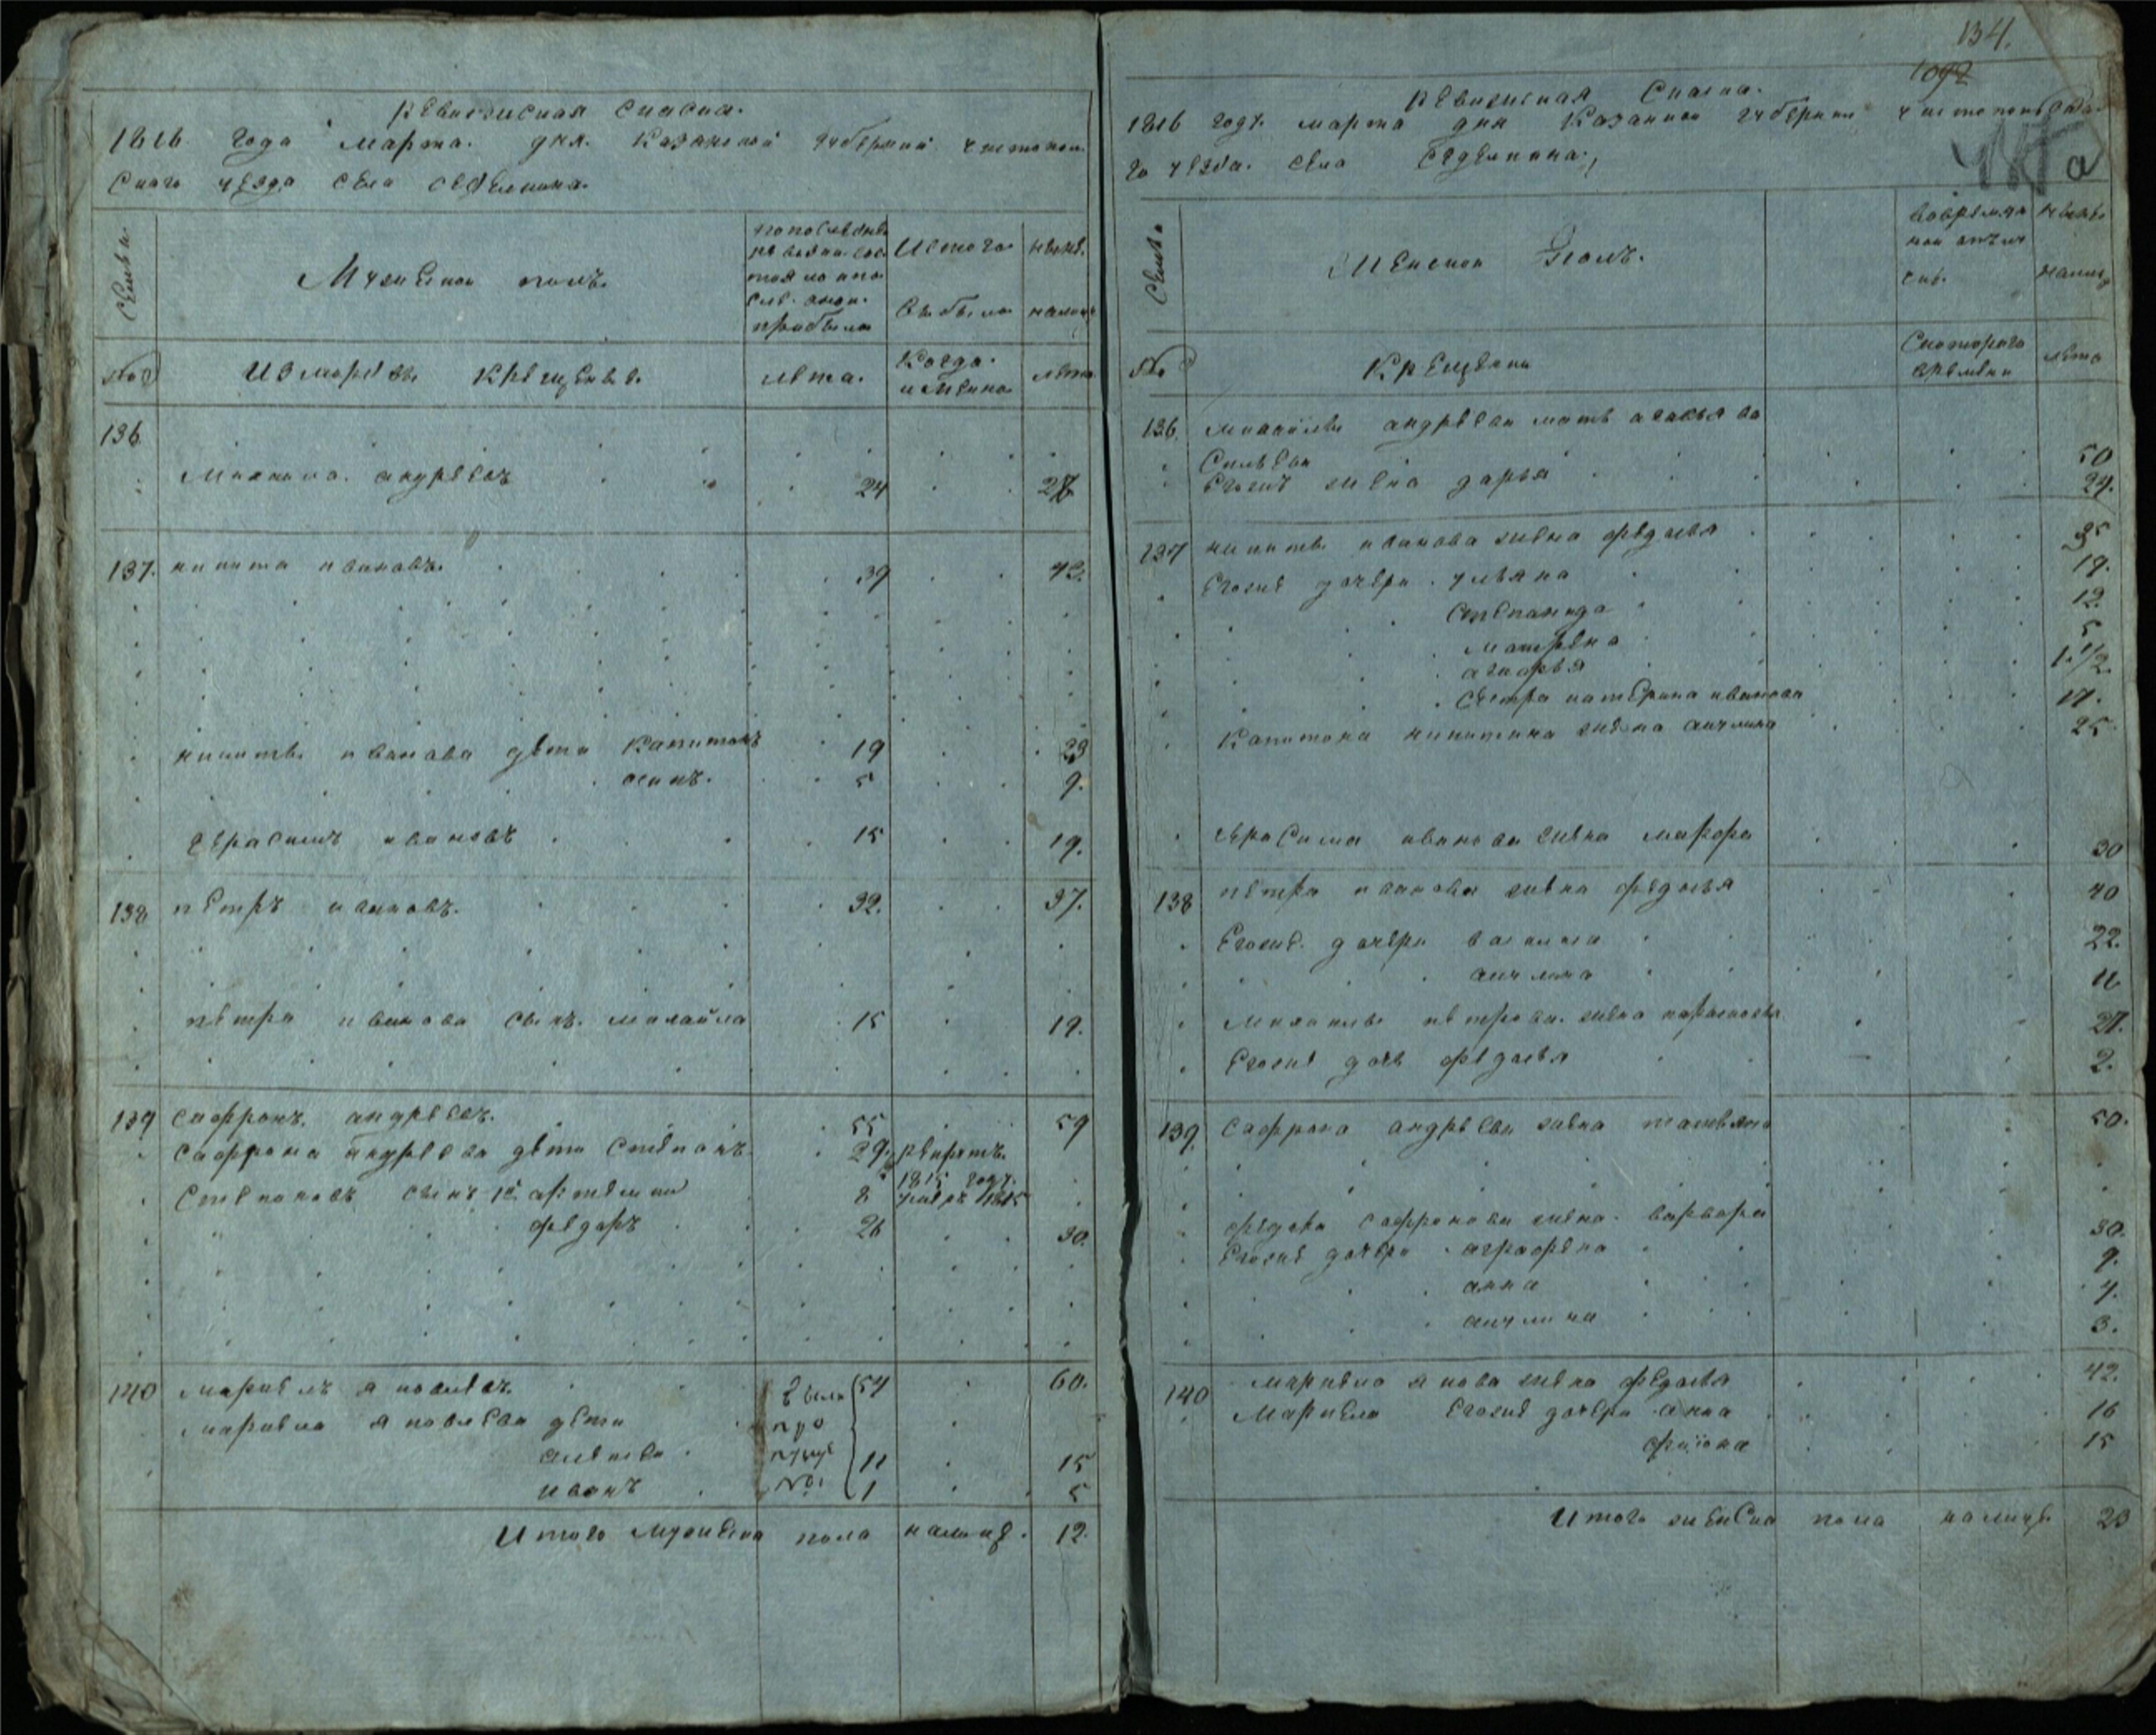 Ревижская Сказка.
1816 года марта. дня. Казанской губернии чистопол
скаго уезда села Седелкина.
Семьи.
Мужеской полъ.
по последней ревизии состояло и после онои прибыло
Изтого выбыло
ныне налицо
№
Из мордвы крещеные.
лета.
Когда именно
лета
136
Михаила. андреевъ 24 28
137. никита ивановъ. 39 43.
никиты иванова дети Капитонъ 19 23
осипъ. 5 9.
герасимъ ивановъ 15 19.
138 петръ ивановъ. 32. 37.
петра иванова сынъ. михайла 15 19.
139 сафронъ. андреевъ. 55 59
сафрона андреева дети степанъ 29. рекрутъ. 1815 году.
Степановъ сынъ 1й артемии 8 умеръ 1815
федоръ 26 30.
140 маркелъ яковлевъ. 54 60.
маркела яковлева дети
алексеи 11 15
иванъ 1 5
Итого мужеска пола налице. 12.
134.
1092
а
Ревижская Сказка.
1816 году. марта дня Казанской губернии чистопольска
го уезда. села Седелкина.
Семьи
Женской Полъ.
вовременной отлучке.
ныне налицо
№
Крещены
Скоторого времени
лета
136 михайлы андреева мать авдотья
Савельева 50
Егожъ жена дарья 24.
137 никиты иванова жена федосья 35
Егоже дочери. ульяна 19.
степанида 12.
матрена 5
агафья 1.1/2
сестра катерина иванова 17.
Капитона никитина жена акулина 25
Герасима иванова жена марфа 30
138 петра иванова жена федосья 40
Егоже. дочери василиса 22.
акулина 11
михаилы петрова. жена парасковья 27.
Егоже дочь федосья 2.
139. Сафрона андреева жена татьяна 50.
федора сафронова жена. варвара 30.
Егоже дочери. аграфена 9.
анна 4.
акулина 3.
140 маркела яковлева жена федосья 42.
Маркела Егоже дочери анна 16
15
Итого женска пола налице 23